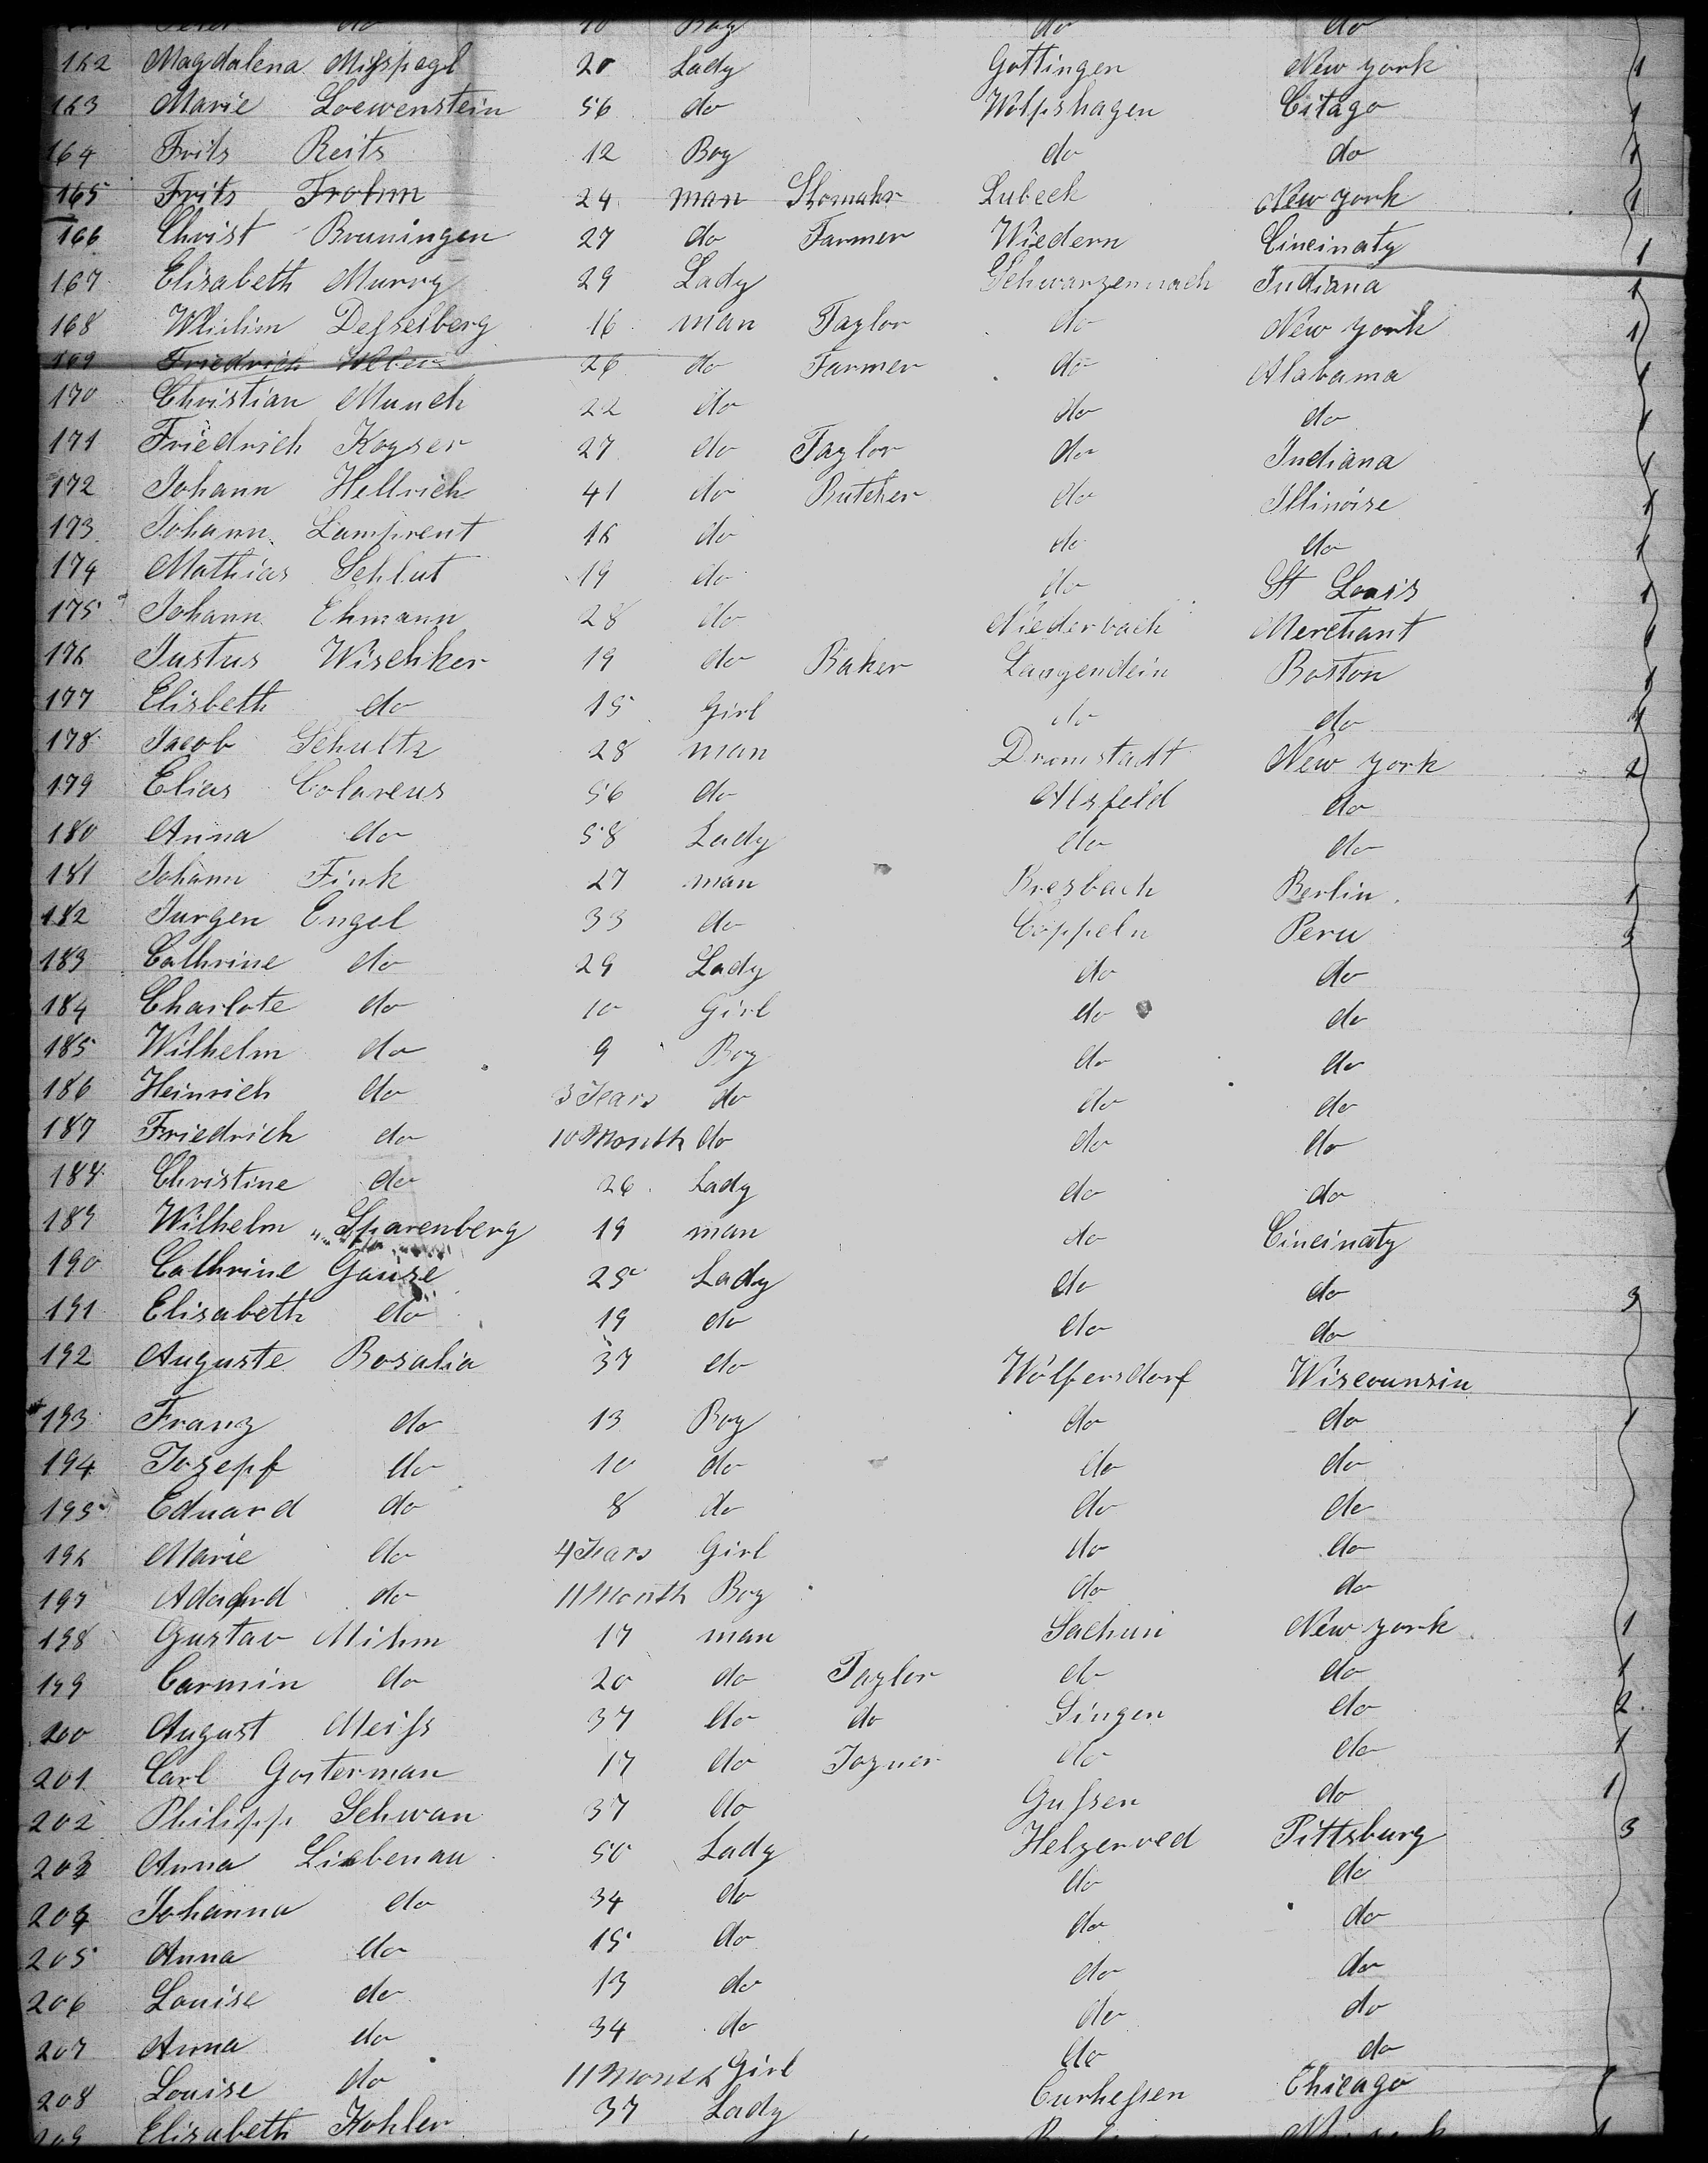 do 10 Boy do do
162 Magdalena Misspagl 20 Lady Gottingen New york 1
163 Marie Loewenstein 56 do Wolfshagen Citago 1
164 Frits Reits 12 Boy do do 1
165 Frits Frohm 24 man Lubeck New york 1
166 Christ Bruningen 27 do Farmer Wiedern Cincinaty 1
167 Elisabeth Murry 29 Lady Indiana 1
168 Desselberg 16 man Taylor do New york 1
169 Friedrich Weber 26 do Farmer do Alabama 1
170 Christian Munch 22 do do do 1
171 Friedrich Koyser 27 do Taylor do Indiana 1
172 Johann Hellrich 41 do Butcher do Illinoise 1
173 Johann Lamprent 16 do do do 1
174 Mathias Schlut 19 do do St Louis 1
175 Johann Ehmann 28 do Niederbach Merchant 1
176 Justus Wischker 19 do Baker Langendein Boston 1
177 Elisbeth do 15 Girl do do 1
178 Jacob Schultz 28 man Dramstadt New york 2
179 Elias Colareus 56 do Alsfeld do
180 Anna do 58 Lady do do
181 Johann Fink 27 man Bresbach Berlin 1
182 Jurgen Engel 33 do Coppeln Peru 3
183 Cathrine do 29 Lady do do
184 Charlote do 10 Girl do do
185 Wilhelm do 9 Boy do do
186 Heinrich do 3 Years do do do
187 Friedrich do 10 Month do do do
188 Christine do 26 Lady do do
189 Wilhelm Sparenberg 19 man do Cincinaty
190 Cathrine Gauize 25 Lady do do 3
191 Elisabeth do 19 do do do
192 Auguste Rosalia 37 do Wolfersdorf Wisconnsin
193 Franz do 13 Boy do do 1
194 Josepf do 10 do do do
195 Eduard do 8 do do do
196 Marie do 4 Years Girl do do
197 do 11 Month Boy do do
198 Gustav Mihm 17 man Sachuri New york 1
199 Carmin do 20 do Taylor do do 1
200 August Meiss 37 do do Singen do 2
201 Carl Gosterman 17 do Joyner do do 1
202 Philipp Schwan 37 do Gussen do 1
203 Anna Liebenau 50 Lady Helzerved Pittsburg 3
204 Johanna do 34 do do do
205 Anna do 15 do do do
206 Louise do 13 do do do
207 Anna do 34 do do do
208 Louise do 11 Month Girl do do
209 Elisabeth Kohler 37 Lady Curhessen Chicago 1